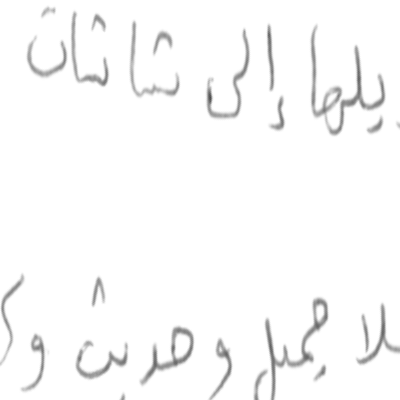 يلها إلى شاشات
لا جميل وحديث و